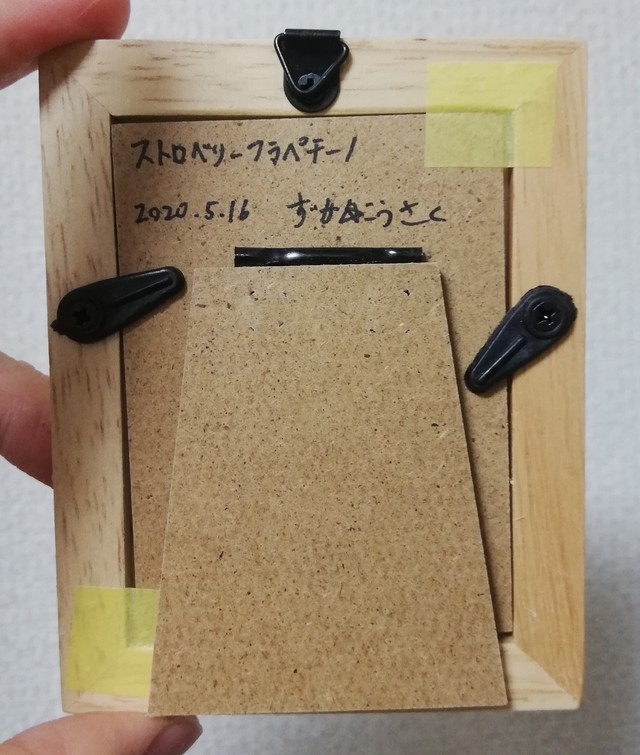 ストロベリーフラペチーノ
2020.5.16 ずかめこうさく